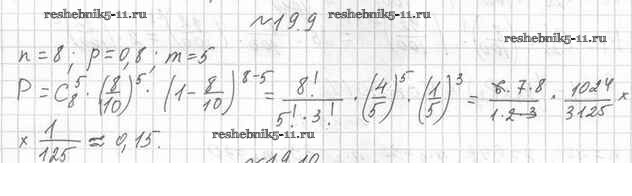 reshebnik5-11.ru №19.9 reshebnik5-11.ru
n = 8; p = 0,8; m = 5
P = C₈⁵ · (8/10)⁵ · (1 - 8/10)⁸⁻⁵ = 8!/(5! · 3!) · (4/5)⁵ · (1/5)³ = (6 · 7 · 8)/(1 · 2 · 3) · 1024/3125 ×
× 1/125 ≈ 0,15.
reshebnik5-11.ru
№19.10